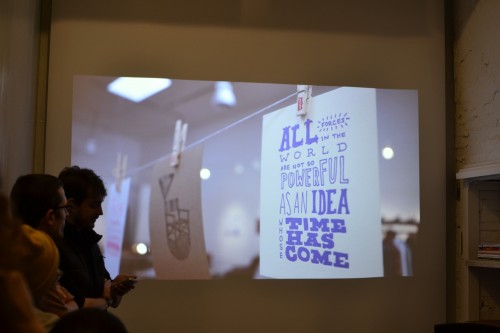 ALL FORCES
IN THE
WORLD
ARE NOT SO
POWERFUL
AS AN IDEA
WHOSE
TIME
HAS
COME